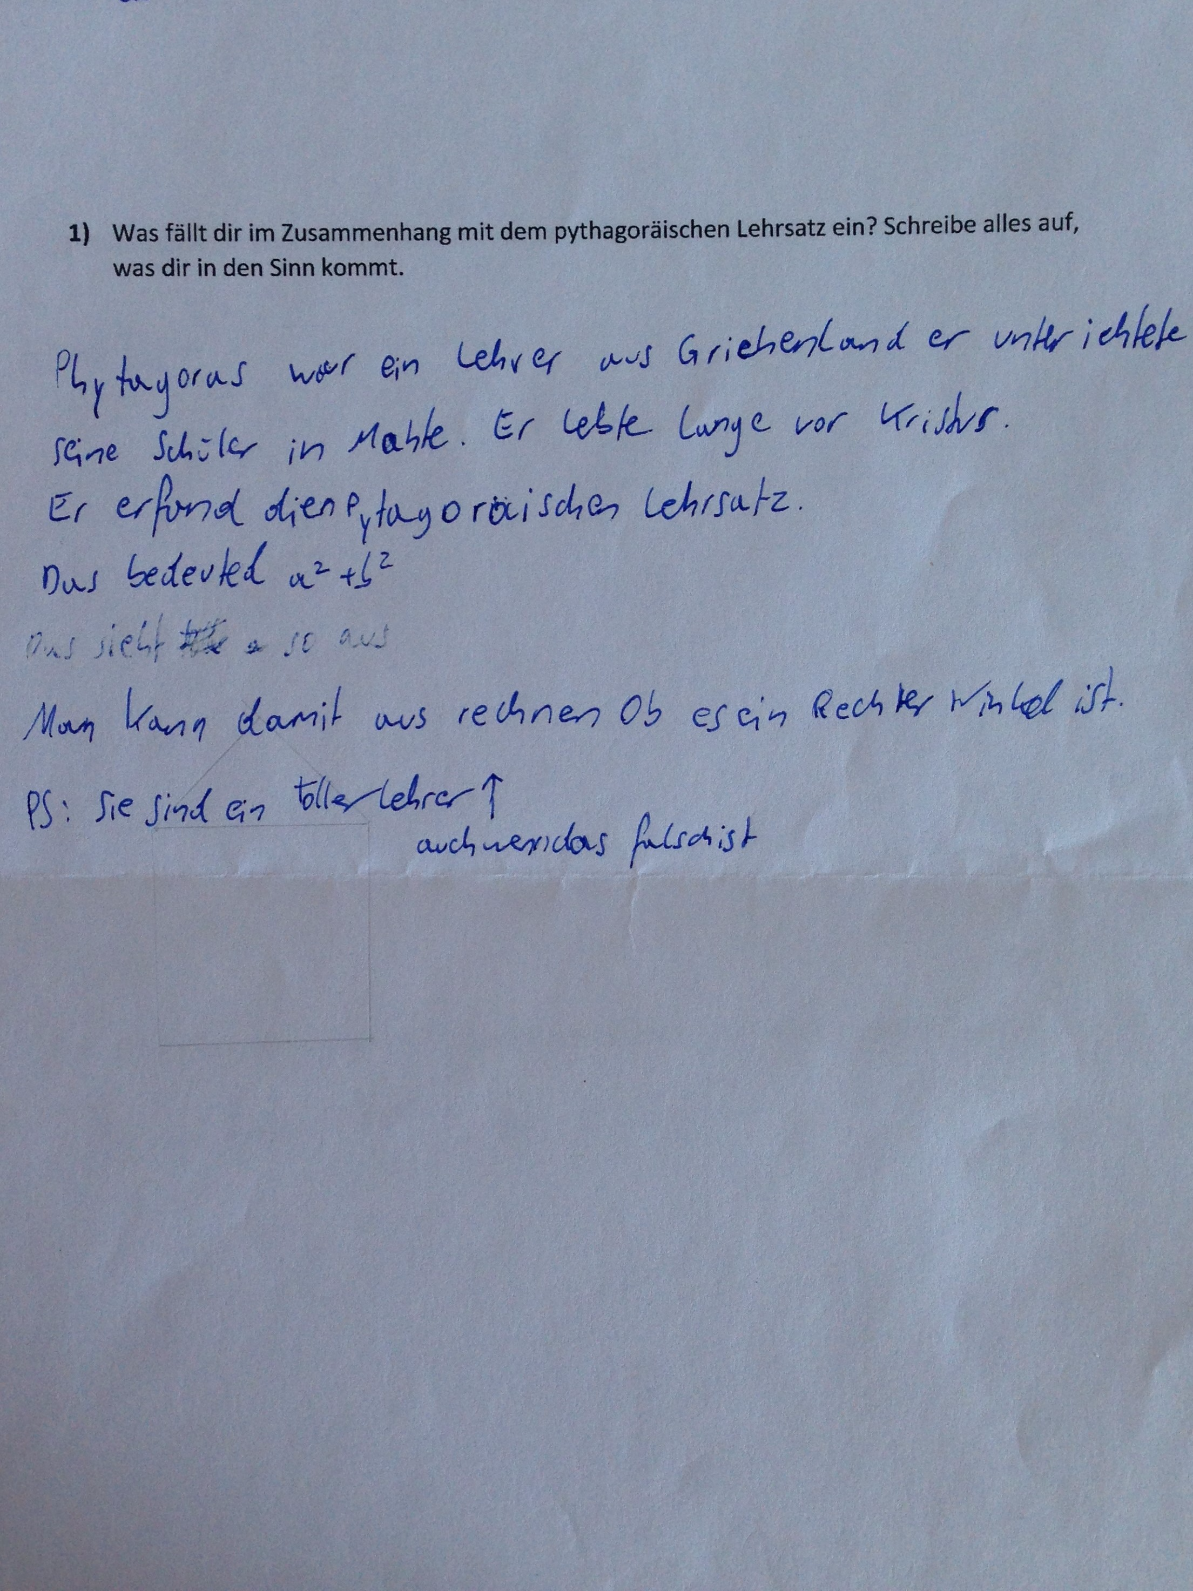 1) Was fällt dir im Zusammenhang mit dem pythagoräischen Lehrsatz ein? Schreibe alles auf,
was dir in den Sinn kommt.
Phytagoras war ein Lehrer aus Griehenland er unterichtete
seine Schüler in Mahte. Er lebte lange vor Kristus.
Er erfand dien Pytagoräischen Lehrsatz.
Das bedeuted a² + b²
Das sieht so aus
Man kann damit aus rechnen Ob es ein Rechter Winkel ist.
PS: Sie sind ein toller Lehrer ↑
auch wenn das falsch ist